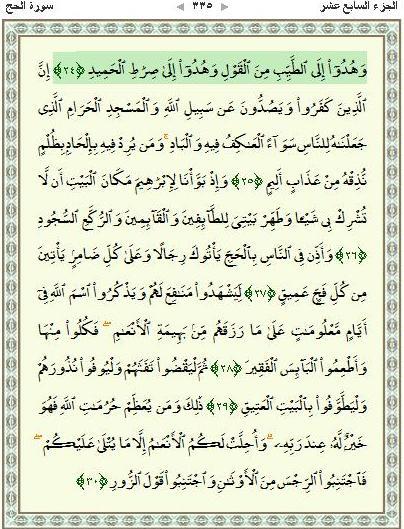 الجزء السابع عشر ٣٣٥ سورة الحج
وَهُدُوٓا۟ إِلَى ٱلطَّيِّبِ مِنَ ٱلْقَوْلِ وَهُدُوٓا۟ إِلَىٰ صِرَٰطِ ٱلْحَمِيدِ ﴿٢٤﴾ إِنَّ
ٱلَّذِينَ كَفَرُوا۟ وَيَصُدُّونَ عَن سَبِيلِ ٱللَّهِ وَٱلْمَسْجِدِ ٱلْحَرَامِ ٱلَّذِى
جَعَلْنَٰهُ لِلنَّاسِ سَوَآءً ٱلْعَٰكِفُ فِيهِ وَٱلْبَادِ ۚ وَمَن يُرِدْ فِيهِ بِإِلْحَادٍۭ بِظُلْمٍ
نُّذِقْهُ مِنْ عَذَابٍ أَلِيمٍ ﴿٢٥﴾ وَإِذْ بَوَّأْنَا لِإِبْرَٰهِيمَ مَكَانَ ٱلْبَيْتِ أَن لَّا
تُشْرِكْ بِى شَيْـًٔا وَطَهِّرْ بَيْتِىَ لِلطَّآئِفِينَ وَٱلْقَآئِمِينَ وَٱلرُّكَّعِ ٱلسُّجُودِ
﴿٢٦﴾ وَأَذِّن فِى ٱلنَّاسِ بِٱلْحَجِّ يَأْتُوكَ رِجَالًا وَعَلَىٰ كُلِّ ضَامِرٍ يَأْتِينَ
مِن كُلِّ فَجٍّ عَمِيقٍ ﴿٢٧﴾ لِّيَشْهَدُوا۟ مَنَٰفِعَ لَهُمْ وَيَذْكُرُوا۟ ٱسْمَ ٱللَّهِ فِىٓ
أَيَّامٍ مَّعْلُومَٰتٍ عَلَىٰ مَا رَزَقَهُم مِّنۢ بَهِيمَةِ ٱلْأَنْعَٰمِ ۖ فَكُلُوا۟ مِنْهَا
وَأَطْعِمُوا۟ ٱلْبَآئِسَ ٱلْفَقِيرَ ﴿٢٨﴾ ثُمَّ لْيَقْضُوا۟ تَفَثَهُمْ وَلْيُوفُوا۟ نُذُورَهُمْ
وَلْيَطَّوَّفُوا۟ بِٱلْبَيْتِ ٱلْعَتِيقِ ﴿٢٩﴾ ذَٰلِكَ وَمَن يُعَظِّمْ حُرُمَٰتِ ٱللَّهِ فَهُوَ
خَيْرٌ لَّهُۥ عِندَ رَبِّهِۦ ۗ وَأُحِلَّتْ لَكُمُ ٱلْأَنْعَٰمُ إِلَّا مَا يُتْلَىٰ عَلَيْكُمْ ۖ
فَٱجْتَنِبُوا۟ ٱلرِّجْسَ مِنَ ٱلْأَوْثَٰنِ وَٱجْتَنِبُوا۟ قَوْلَ ٱلزُّورِ ﴿٣٠﴾